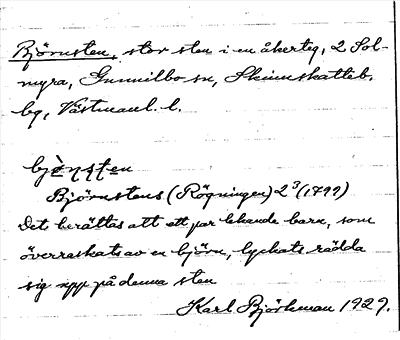 Björnsten, stor sten i en åkerteg, 2 Sol-
myra, Gunnilbo sn, Skinnskatteb.
bg, Västmanl. l.
bjö̀nste̥n
Björnstens (Rögningen) 2³ (1799)
Det berättas att ett par lekande barn, som
överraskats av en björn, lyckats rädda
sig upp på denna sten
Karl Björkman 1927.